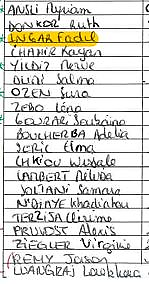 ANSLI Myriam
DONKOR Ruth
UNGAR Fadel
CHAHIR Kayan
YILDIZ Merve
DURI Salma
OZEN Sura
ZEBO Léna
GOURARI Soukaina
BOUCHERBA Adelia
SERIC Elma
CHKIOU Wissale
LAMBERT Mélissa
SOLTANI Samara
NDIAYE Khadiatou
TERZIJA Clirime
PRUVOST Alexis
ZIEGLER Virginie
REMY Jason